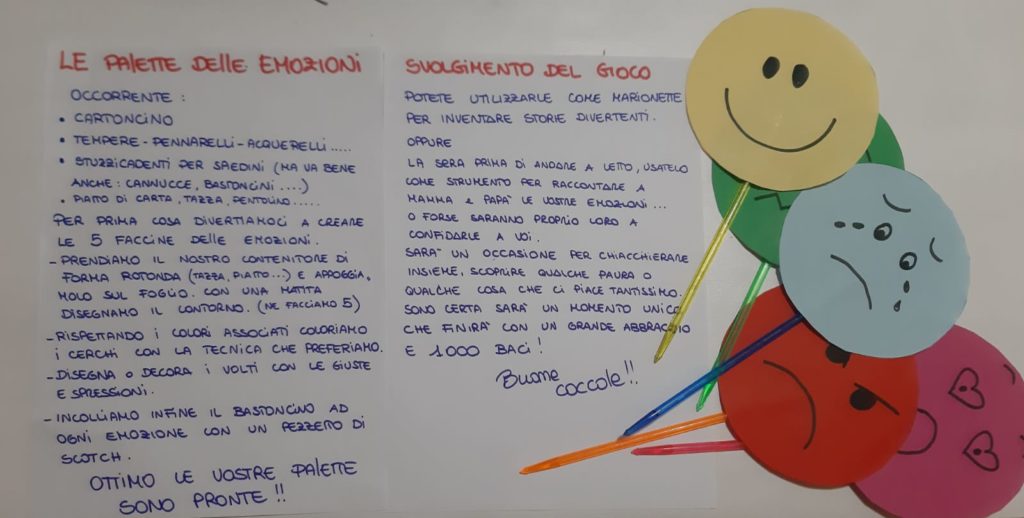 LE PALETTE DELLE EMOZIONI
OCCORRENTE :
• CARTONCINO
• TEMPERE - PENNARELLI - ACQUERELLI .....
• STUZZICADENTI PER SPIEDINI (MA VA BENE
ANCHE : CANNUCCE, BASTONCINI ....)
• PIATTO DI CARTA, TAZZA, PENTOLINO .....
PER PRIMA COSA DIVERTIAMOCI A CREARE
LE 5 FACCINE DELLE EMOZIONI.
- PRENDIAMO IL NOSTRO CONTENITORE DI
FORMA ROTONDA (TAZZA, PIATTO...) E APPOGGIA,
MOLO SUL FOGLIO. CON UNA MATITA
DISEGNAMO IL CONTORNO. (NE FACCIAMO 5)
- RISPETTANDO I COLORI ASSOCIATI COLORIAMO
I CERCHI CON LA TECNICA CHE PREFERIAMO.
- DISEGNA O DECORA I VOLTI CON LE GIUSTE
ESPRESSIONI.
- INCOLLIAMO INFINE IL BASTONCINO AD
OGNI EMOZIONE CON UN PEZZETTO DI
SCOTCH.
OTTIMO LE VOSTRE PALETTE
SONO PRONTE !!
SVOLGIMENTO DEL GIOCO
POTETE UTILIZZARLE COME MARIONETTE
PER INVENTARE STORIE DIVERTENTI.
OPPURE
LA SERA PRIMA DI ANDARE A LETTO, USATELO
COME STRUMENTO PER RACCONTARE A
MAMMA E PAPA' LE VOSTRE EMOZIONI ...
O FORSE SARANNO PROPRIO LORO A
CONFIDARLE A VOI.
SARA' UN OCCASIONE PER CHIACCHIERARE
INSIEME, SCOPRIRE QUALCHE PAURA O
QUALCHE COSA CHE CI PIACE TANTISSIMO.
SONO CERTA SARA' UN MOMENTO UNICO
CHE FINIRA' CON UN GRANDE ABBRACCIO
E 1000 BACI !
Buone
coccole !!